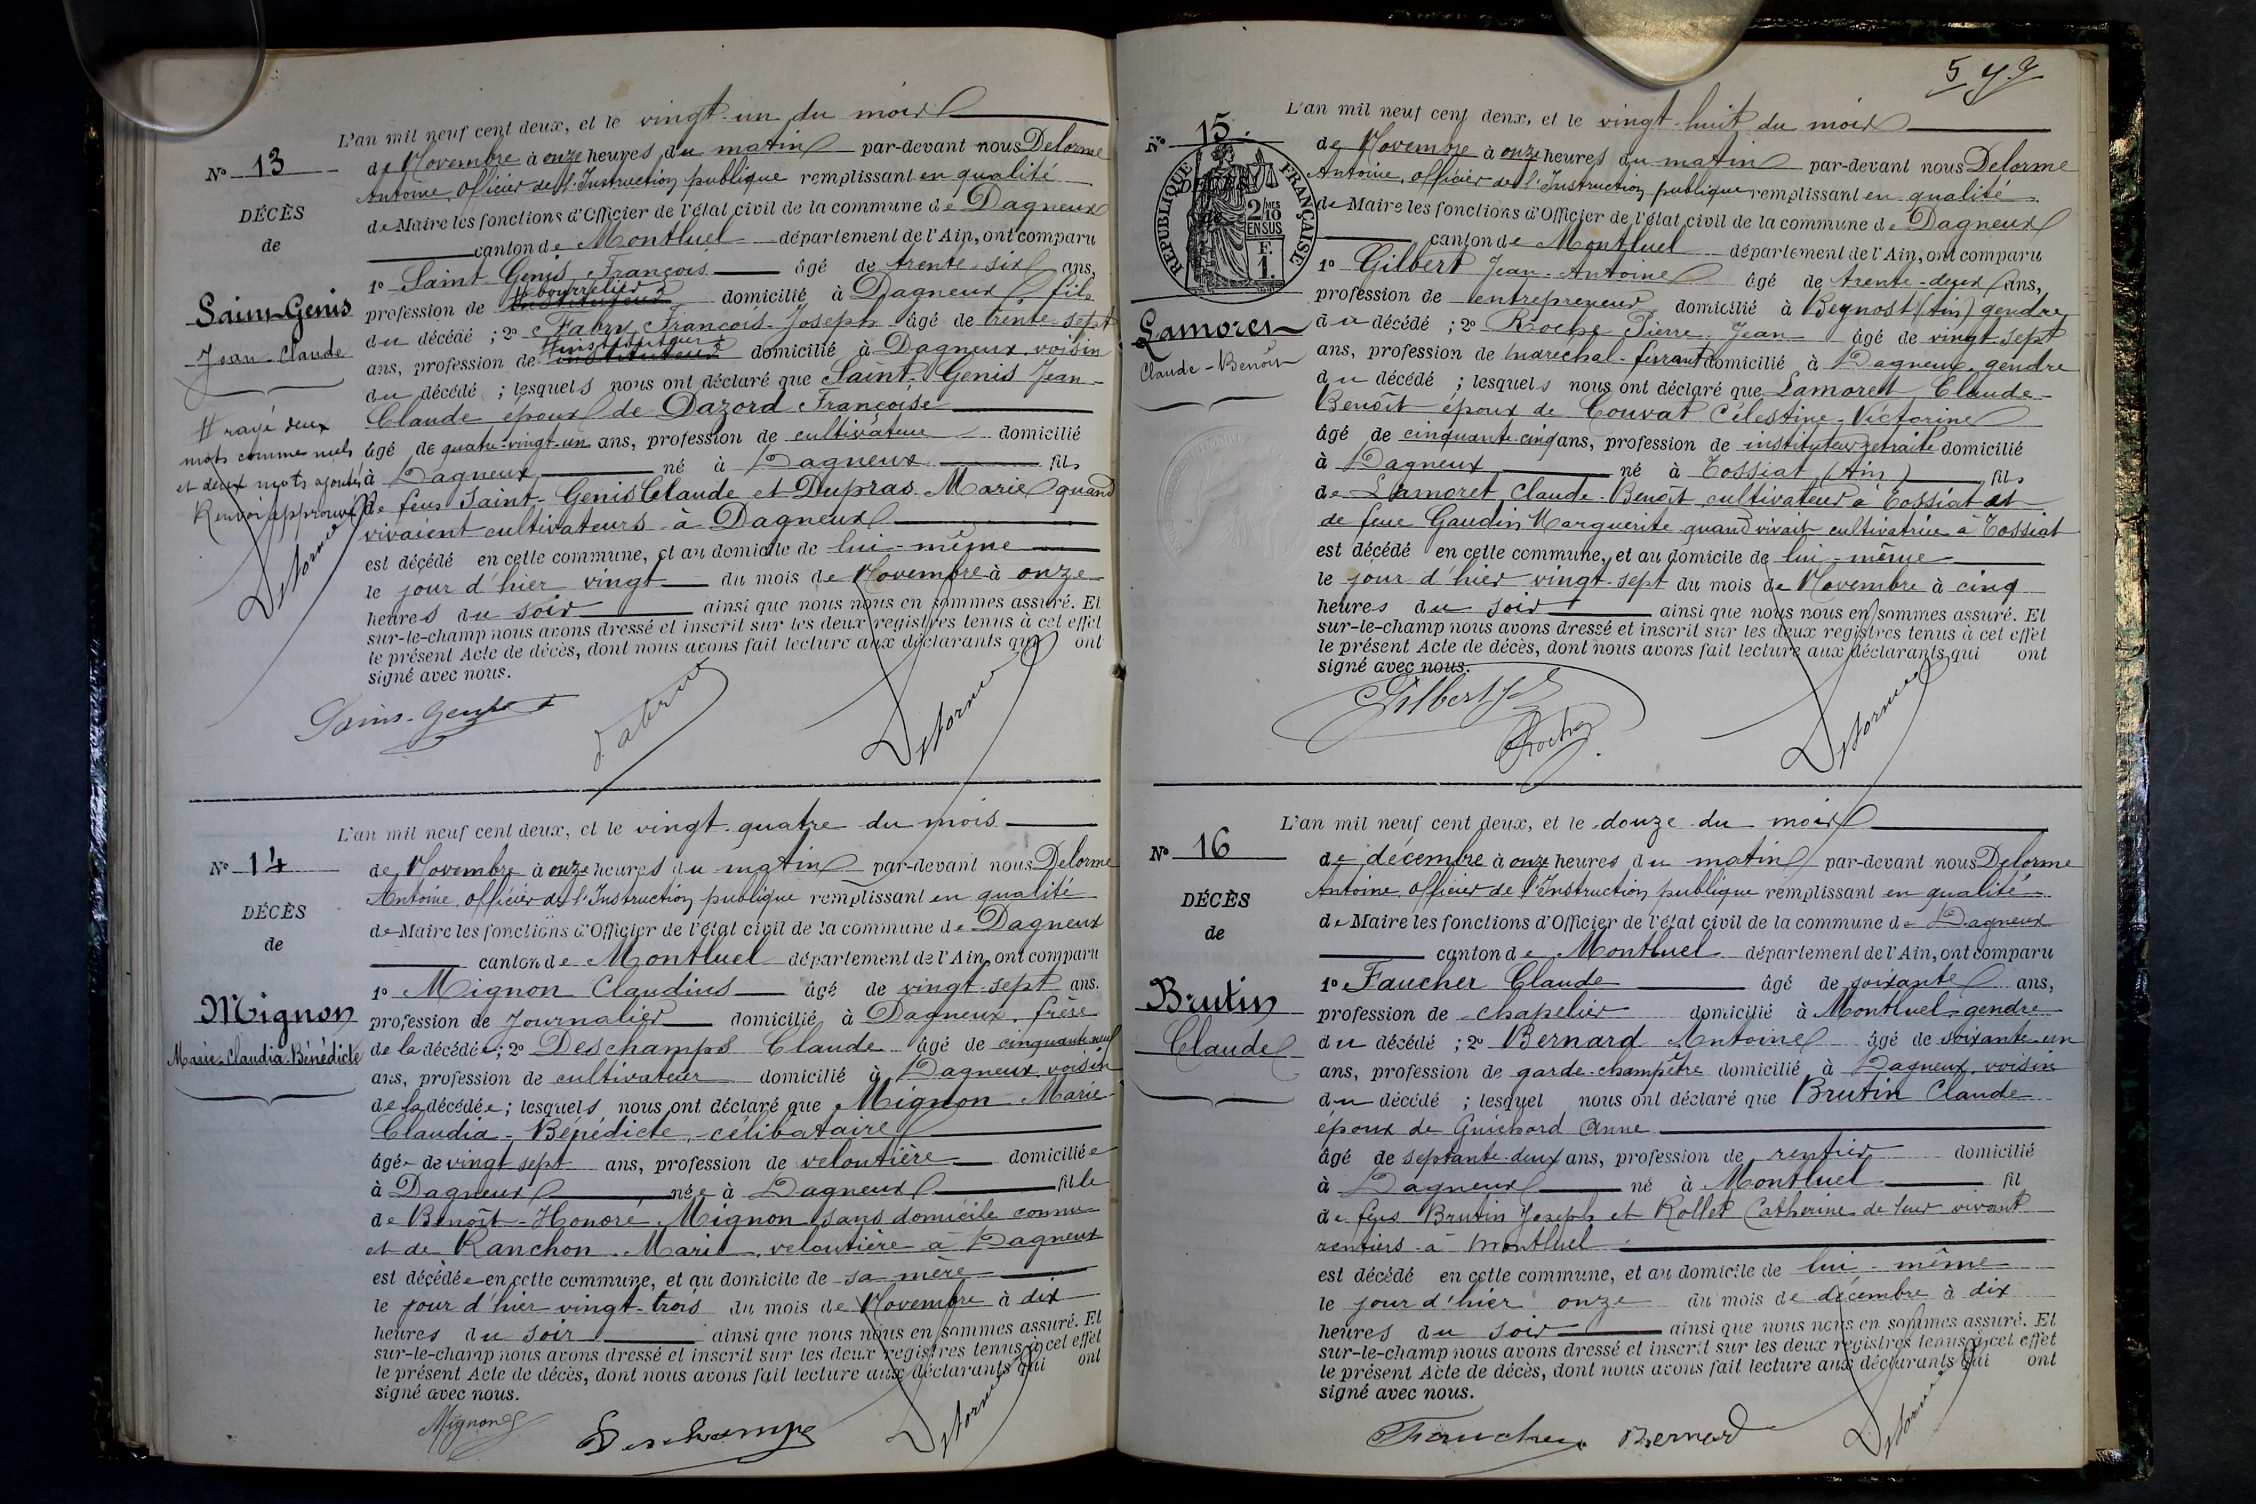 L'an mil neuf cent deux, et le vingt-un du mois
N° 13
de Novembre à onze heures du matin par-devant nous Delorme
Antoine, Officier de l'Instruction publique remplissant en qualité
DÉCÈS
de Maire les fonctions d'Officier de l'état civil de la commune de Dagneux
de
canton de Montluel département de l'Ain, ont comparu
1° Saint-Genis François âgé de trente-six ans,
Saint-Genis
profession de # bourrelier domicilié à Dagneux, fils
du décédé ; 2° Fabry François-Joseph âgé de trente-sept
Jean-Claude
ans, profession de # instituteur domicilié à Dagneux, voisin
du décédé ; lesquels nous ont déclaré que Saint-Genis Jean-
Claude époux de Dazord Françoise
# rayé deux
mots comme nuls
et deux mots ajoutés
Renvoi approuvé
Delorme
âgé de quatre-vingt-un ans, profession de cultivateur domicilié
à Dagneux né à Dagneux fils
de feus Saint-Genis Claude et Dupras Marie quand
vivaient cultivateurs à Dagneux
est décédé en cette commune, et au domicile de lui-même
le jour d'hier vingt du mois de Novembre à onze
heures du soir ainsi que nous nous en sommes assuré. Et
sur-le-champ nous avons dressé et inscrit sur les deux registres tenus à cet effet
le présent Acte de décès, dont nous avons fait lecture aux déclarants qui ont
signé avec nous.
Saint-Genis
Delorme
L'an mil neuf cent deux, et le vingt-quatre du mois
N° 14
de Novembre à onze heures du matin par-devant nous Delorme
Antoine, Officier de l'Instruction publique remplissant en qualité
DÉCÈS
de Maire les fonctions d'Officier de l'état civil de la commune de Dagneux
de
canton de Montluel département de l'Ain, ont comparu
1° Mignon Claudius âgé de vingt-sept ans,
Mignon
profession de journalier domicilié à Dagneux, frère
Marie-Claudia-Bénédicte
de la décédée ; 2° Deschamps Claude âgé de cinquante-neuf
ans, profession de cultivateur domicilié à Dagneux, voisin
de la décédée ; lesquels nous ont déclaré que Mignon Marie-
Claudia-Bénédicte, célibataire
âgée de vingt sept ans, profession de veloutière domiciliée
à Dagneux née à Dagneux fille
de Benoît-Honoré Mignon sans domicile connu
et de Ranchon Marie, veloutière à Dagneux
est décédée en cette commune, et au domicile de sa mère
le jour d'hier vingt-trois du mois de Novembre à dix
heures du soir ainsi que nous nous en sommes assuré. Et
sur-le-champ nous avons dressé et inscrit sur les deux registres tenus à cet effet
le présent Acte de décès, dont nous avons fait lecture aux déclarants qui ont
signé avec nous.
Mignon
Deschamps
Delorme
5
L'an mil neuf cent deux, et le vingt-huit du mois
N° 15.
de Novembre à onze heures du matin par-devant nous Delorme
Antoine, Officier de l'Instruction publique remplissant en qualité
DÉCÈS
de
RÉPUBLIQUE FRANÇAISE
2/10 MES EN SUS
F. 1.
de Maire les fonctions d'Officier de l'état civil de la commune de Dagneux
canton de Montluel département de l'Ain, ont comparu
1° Gilbert Jean-Antoine âgé de trente-deux ans,
profession de entrepreneur domicilié à Beynost (Ain) gendre
Lamoret
du décédé ; 2° Roche Pierre-Jean âgé de vingt-sept
Claude-Benoît
ans, profession de maréchal-ferrant domicilié à Dagneux, gendre
du décédé ; lesquels nous ont déclaré que Lamoret Claude-
Benoît époux de Couvat Célestine-Victorine
âgé de cinquante-cinq ans, profession de instituteur retraité domicilié
à Dagneux né à Tossiat (Ain) fils
de Lamoret Claude-Benoît cultivateur à Tossiat et
de feue Gaudin Marguerite quand vivait cultivatrice à Tossiat
est décédé en cette commune, et au domicile de lui-même
le jour d'hier vingt-sept du mois de Novembre à cinq
heures du soir ainsi que nous nous en sommes assuré. Et
sur-le-champ nous avons dressé et inscrit sur les deux registres tenus à cet effet
le présent Acte de décès, dont nous avons fait lecture aux déclarants qui ont
signé avec nous.
Gilbert
Roche
Delorme
L'an mil neuf cent deux, et le douze du mois
N° 16
de décembre à onze heures du matin par-devant nous Delorme
Antoine, Officier de l'Instruction publique remplissant en qualité
DÉCÈS
de Maire les fonctions d'Officier de l'état civil de la commune de Dagneux
de
canton de Montluel département de l'Ain, ont comparu
1° Faucher Claude âgé de soixante ans,
Brutin
profession de chapelier domicilié à Montluel, gendre
Claude
du décédé ; 2° Bernard Antoine âgé de soixante-un
ans, profession de garde-champêtre domicilié à Dagneux, voisin
du décédé ; lesquel nous ont déclaré que Brutin Claude
époux de Guichard Anne
âgé de septante-deux ans, profession de rentier domicilié
à Dagneux né à Montluel fil
de feus Brutin Joseph et Rollet Catherine de leur vivant
rentiers à Montluel
est décédé en cette commune, et au domicile de lui-même
le jour d'hier onze du mois de décembre à dix
heures du soir ainsi que nous nous en sommes assuré. Et
sur-le-champ nous avons dressé et inscrit sur les deux registres tenus à cet effet
le présent Acte de décès, dont nous avons fait lecture aux déclarants qui ont
signé avec nous.
Faucher
Bernard
Delorme